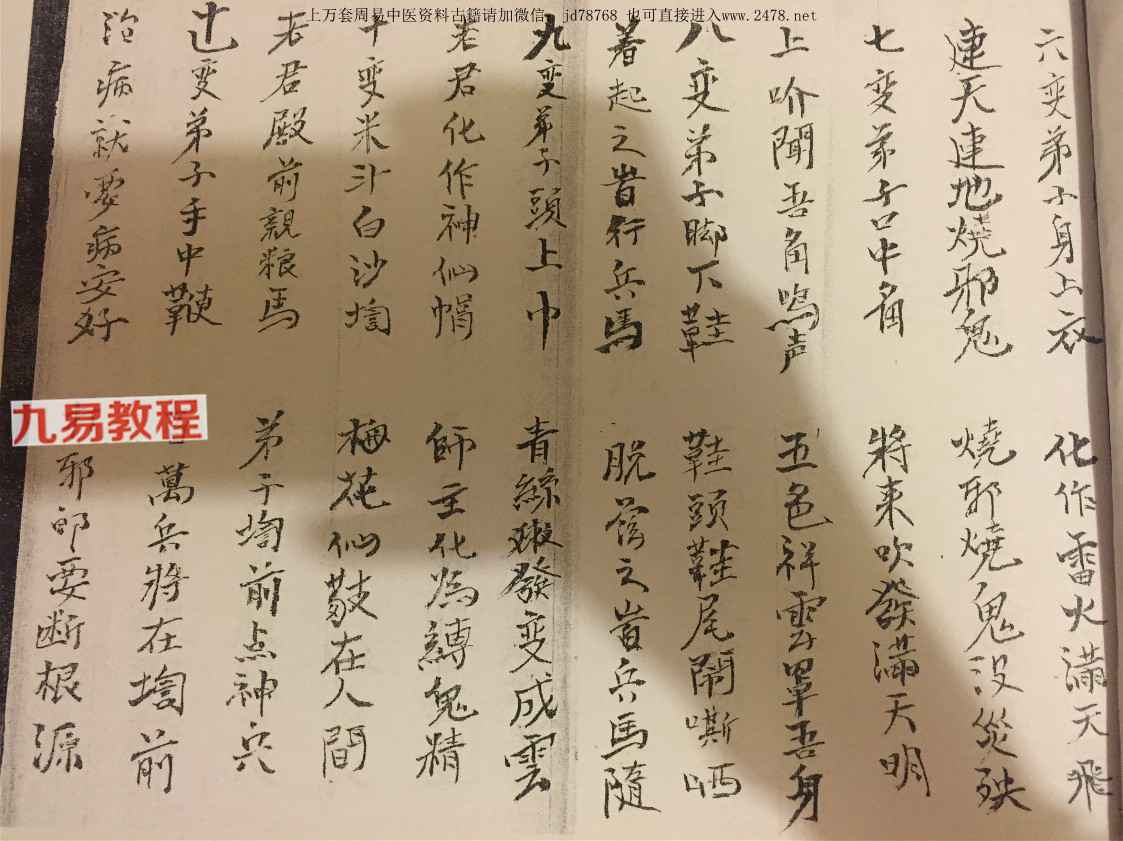 上万套周易中医资料古籍请加微信：jd78768 也可直接进入www.2478.net
六变弟子身上衣 化作雷火满天飛
連天連地燒邪鬼 燒邪燒鬼没災殃
七变弟子口中角 將来吹發滿天明
上吤聞吾角鳴声 五色祥雲罩吾身
八变弟子脚下鞋 鞋頭鞋尾鬧嘶哂
著起之時行兵馬 脱落之時兵馬隨
九变弟子頭上巾 青絲嫩發变成雲
老君化作神仙帽 師主化為縛鬼精
十变米斗白沙壇 梅花仙鼓在人間
老君殿前親粮馬 弟子壇前点神兵
变弟子手中鞭 萬兵將在壇前
治病就要病安好 邪即要断根源
九易教程